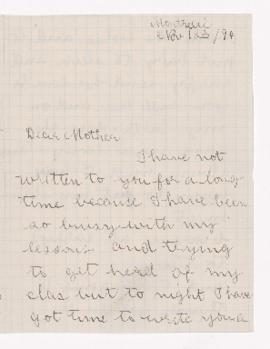 Montreal
Nov 23/94
Dear Mother
I have not
written to you for a long
time because I have been
so bussy with my
lessons and trying
to get head of my
clas but to night I have
got time to write you a